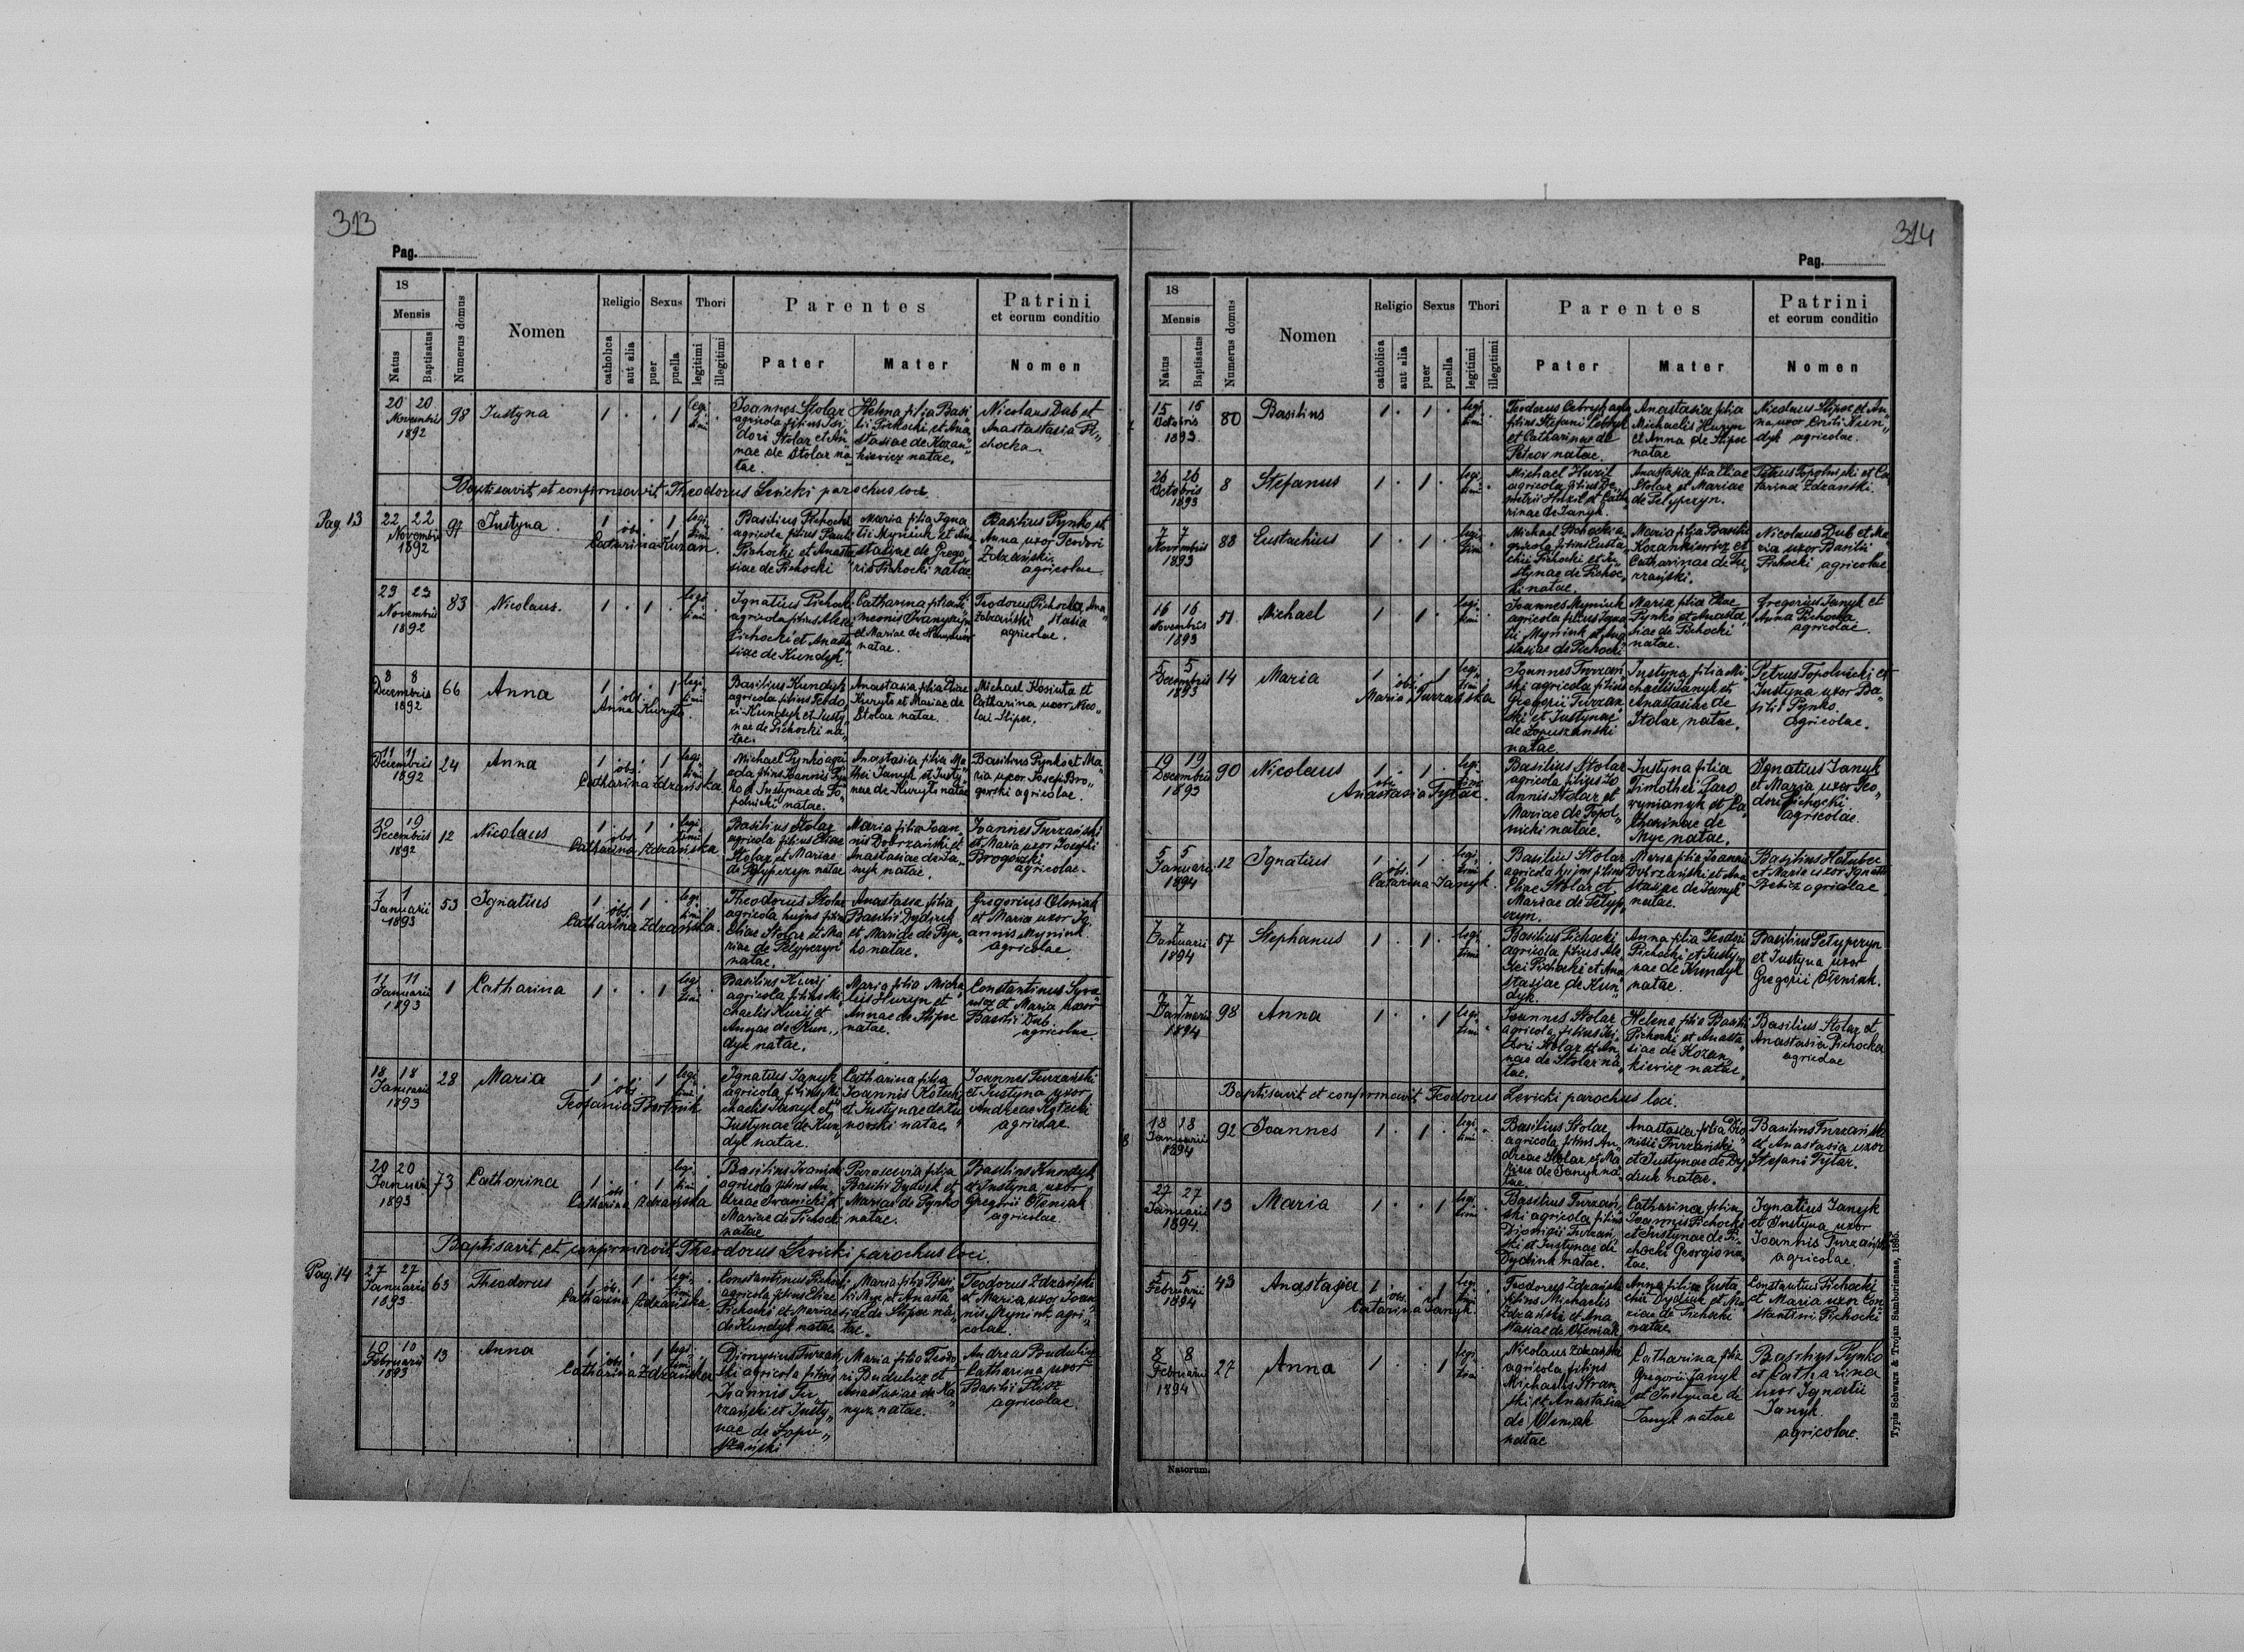 313
Pag.
18
Mensis
Natus
Baptisatus
Numerus domus
Nomen
Religio
catholica
aut alia
Sexus
puer
puella
Thori
legitimi
illegitimi
Parentes
Pater
Mater
Patrini
et eorum conditio
Nomen
20 20
Novembris
1892
98
Justyna
1 . . 1
legi
timi
Joannes Stolar
agricola filius Isi
dori Stolar et An
nae de Stolar na
tae.
Helena filia Basi
lii Pichocki et Ana
stasiae de Kozan
kiewicz natae.
Nicolaus Dub et
Anastastasia Pi
chocka.
Baptisavit et confirmavit Theodorus Levicki parochus loci.
Pag 13
22 22
Novembris
1892
97
Justyna.
1 . . 1
obs.
Catarina Kuzan.
legi
timi
Basilius Pichocki
agricola filius Pauli
Pichocki et Anasta
siae de Pichocki
Maria filia Igna
tii Myniuk et Ana
stasiae de Grego
ris Pichocki natae.
Basilius Pynko et
Anna uxor Teodori
Zdzański
agricolae.
23 23
Novembris
1892
83
Nicolaus.
1 . 1 .
legi
timi
Ignatius Pichocki
agricola filius Alexi
Pichocki et Anasta
siae de Kundyk
Catharina filia Si
meonis Ivanyszyn
et Mariae de
natae.
Teodorus Pichocka Ana
Zdzański stasia
agricolae.
8 8
Decembris
1892
66
Anna
1 . . 1
obs.
Anna Kuryło.
legi
timi
Basilius Kundyk
agricola filius Teodo
ri Kundyk et Justy
nae de Pichocki na
tae.
Anastasia filia Eliae
Kuryło et Mariae de
Stolar natae.
Michael Kosiuta et
Catharina uxor Nico
lai Slipec.
11 11
Decembris
1892
24
Anna
1 . . 1
obs.
Catharina Zdzańska.
legi
timi
Michael Pynko agri
cola filius Joannis Pyn
ko et Justynae de To
polnicki natae.
Anastasia filia Ma
thei Janyk et Justy
nae de Kuryło natae
Basilius Pynko et Ma
ria uxor Josefi Bro
gowski agricolae.
19
Decembris
1892
12
Nicolaus
1 . 1 .
obs.
Catharina Zdzańska
legi
timi
Basilius Stolar
agricola filius Eliae
Stolar et Mariae
de Pelypczyn natae
Maria filia Joan
nis Dobrzański et
Anastasiae de Ja
nyk natae.
Joannes Turzański
et Maria uxor Josephi
Brogowski
agricolae.
1 1
Januarii
1893
53
Ignatius
1 . 1 .
obs.
Catharina Zdzańska.
legi
timi
Theodorus Stolar
agricola hujus filius
Eliae Stolar et Ma
riae de Pelypczyn
natae.
Anastasia filia
Basilii Dydiuk
et Mariae de Pyn
ko natae.
Gregorius Oleniak
et Maria uxor Jo
annis Myniuk
agricolae.
11 11
Januarii
1893
1
Catharina
1 . . 1
legi
timi
Basilius Hurij
agricola filius Mi
chaelis Hurij et
Annae de Kun
dyk natae.
Maria filia Micha
elis Huryn et
Annae de Slipec
natae.
Constantinus
et Maria uxor
Basilii Dub
agricolae.
18 18
Januarii
1893
28
Maria
1 . . 1
obs.
Teofania Bortnik
legi
timi
Ignatius Janyk
agricola filius Mi
chaelis Janyk et
Justynae de Kun
dyk natae.
Catharina filia
Joannis Kotecki
et Justynae de
natae.
Joannes Turzański
et Justyna uxor
Andreae Kotecki
agricolae.
20 20
Januarii
1893
73
Catharina
1 . . 1
obs.
Catharina Zdzańska
legi
timi
Basilius Ivanicki
agricola filius An
dreae Ivanicki et
Mariae de Pichocki
natae
Parascevia filia
Basilii Dydiuk et
Mariae de Pynko
natae.
Basilius Kundyk
et Justyna uxor
Gregorii Oleniak
agricolae.
Baptisavit et confirmavit Theodorus Levicki parochus loci.
Pag. 14
27 27
Januarii
1893
63
Theodorus
1 . 1 .
obs.
Catharina Zdzańska.
legi
timi
Constantinus Pichocki
agricola filius Eliae
Pichocki et Mariae
de Kundyk natae
Maria filia Basi
lii Myc et Anasta
siae de Slipec na
tae.
Teodorus Zdzański
et Maria uxor Joan
nis Myniuk agri
colae.
10 10
Februarii
1893
13
Anna
1 . . 1
obs.
Catharina Zdzańska
legi
timi
Dionysius Turzań
ski agricola filius
Joannis Tur
zański et Justy
nae de Łopu
szański
Maria filia Teodo
ri Budulicz et
Anastasiae de
natae.
Andreas Budulicz
Catharina uxor
Basilii
agricolae.
314
Pag.
18
Mensis
Natus
Baptisatus
Numerus domus
Nomen
Religio
catholica
aut alia
Sexus
puer
puella
Thori
legitimi
illegitimi
Parentes
Pater
Mater
Patrini
et eorum conditio
Nomen
15 16
Octobris
1893
80
Basilius
1 . 1 .
legi
timi
Teodorus Cebryk agr.
filius Stefani Cebryk
et Catharinae de
Petrov natae.
Anastasia filia
Michaelis Huryn
et Anna de Slipec
natae
Nicolaus Slipec et An
na uxor Kun
dyk agricolae.
26 26
Octobris
1893
8
Stefanus
1 . 1 .
legi
timi
Michael Huzil
agricola filius De
metrii Huzil et Catha
rinae de Janyk.
Anastasia filia Eliae
Stolar et Mariae
de Pelypczyn.
Petrus Topolnicki et Ca
tarina Zdzanski.
7 7
Novembris
1893
88
Eustachius
1 . 1 .
legi
timi
Michael Pichocki a
gricola filius Eusta
chii Pichocki et Ju
stynae de Pichoc
ki natae.
Maria filia Basilii
Kozankiewicz et
Catharinae de Tu
rzański.
Nicolaus Dub et Ma
ria uxor Basilii
Pichocki agricolae
16 16
Novembris
1893
51
Michael
1 . 1 .
legi
timi
Joannes Myniuk
agricola filius Igna
tii Myniuk et Ana
stasiae de Pichocki
Maria filia Eliae
Pynko et Anasta
siae de Pichocki
natae.
Gregorius Janyk et
Anna Pichocka
agricolae.
5 5
Decembris
1893
14
Maria
1 . . 1
obs.
Maria Turzańska
legi
timi
Joannes Turzań
ski agricola filius
Gregorii Turzań
ski et Justynae
de Łopuszanski
natae.
Justyna filia Mi
chaelis Janyk et
Anastasiae de
Stolar natae.
Petrus Topolnicki et
Justyna uxor Ba
silii Pynko.
agricolae.
19 19
Decembris
1893
90
Nicolaus
1 . 1 .
obs.
Anastasia Tytar.
legi
timi
Basilius Stolar
agricola filius Jo
annis Stolar et
Mariae de Topol
nicki natae.
Justyna filia
Timothei Jaro
et Ca
tharinae de
Myc natae.
Ignatius Janyk
et Maria uxor Teo
dori Pichocki
agricolae.
5 5
Januarii
1894
12
Ignatius
1 . 1 .
obs.
Catarina Janyk.
legi
timi
Basilius Stolar
agricola hujus filius
Eliae Stolar et
Mariae de Pelyp
czyn.
Maria filia Joannis
Dobrzański et Ana
stasiae de Janyk
natae.
Basilius Hołubec
et Maria uxor Ignatii
agricolae
7 7
Januarii
1894
67
Stephanus
1 . 1 .
legi
timi
Basilius Pichocki
agricola filius Ale
xei Pichocki et Ana
stasiae de Kun
dyk.
Anna filia Teodori
Pichocki et Justy
nae de Kundyk
natae.
Basilius Pelypczyn
et Justyna uxor
Gregorii Oleniak.
7 7
Januarii
1894
98
Anna
1 . . 1
legi
timi
Joannes Stolar
agricola filius Isi
dori Stolar et An
nae de Stolar na
tae.
Helena filia Basilii
Pichocki et Anasta
siae de Kozan
kiewicz natae.
Basilius Stolar et
Anastasia Pichocka
agricolae
Baptisavit et confirmavit Teodorus Levicki parochus loci.
18 18
Januarii
1894
92
Joannes
1 . 1 .
legi
timi
Basilius Stolar
agricola filius An
dreae Stolar et Ma
riae de Janyk na
tae.
Anastasia filia Dio
nisii Turzański
et Justynae de Dy
diuk natae.
Basilius Turzański
et Anastasia uxor
Stefani Tytar.
27 27
Januarii
1894.
13
Maria
1 . . 1
legi
timi
Basilius Turzań
ski agricola filius
Dionisii Turzań
ski et Justynae de
Dydiuk natae.
Catharina filia
Joannis Pichocki
et Justynae de Pi
chocki Georgio na
tae.
Ignatius Janyk
et Justyna uxor
Joannis Turzański
agricolae.
5 5
Februarii
1894
43
Anastasia
1 . . 1
obs.
Catarina Janyk.
legi
timi
Teodorus Zdzański
filius Michaelis
Zdzański et Ana
stasiae de Oleniak
Anna filia Eusta
chii Dydiuk et Ma
riae de Pichocki
natae.
Constantius Pichocki
et Maria uxor Con
stantini Pichocki
8 8
Februarii
1894
27
Anna
1 . . 1
legi
timi
Nicolaus Zdzański
agricola filius
Michaelis
et Anastasiae
de Oleniak
natae
Catharina filia
Gregorii Janyk
et Justynae de
Janyk natae
Basilius Pynko
et Catharina
uxor Ignatii
Janyk.
agricolae.
Natorum.
Typis Schwarz & Trojan Samboriensae, 1885.